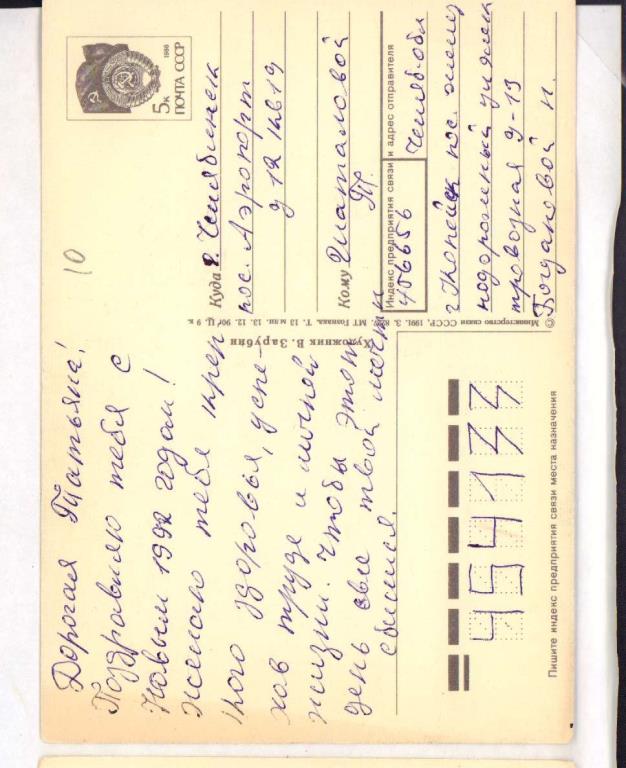 Дорогая Татьяна!
Поздравляю тебя с
Новым 1992 годом!
Желаю тебе креп
кого здоровья, успе
хов труде и личной
жизни. Чтобы этот
день все твои мечты
сбылись.
5к
1988
ПОЧТА СССР
10
Куда г. Челябинск
пос. Аэропорт
д 12 кв 19
Кому Шаталовой
Т.
Индекс предприятия связи и адрес отправителя
456656 Челяб. обл
г Копейск пос. желез
нодорожный
9-13
Богдановой Н.
© Министерство связи СССР, 1991. З. МТ Гознака. Т. 13 млн. 13. 12. 90г. Ц. 9 к.
Художник В. Зарубин
454133
Пишите индекс предприятия связи места назначения